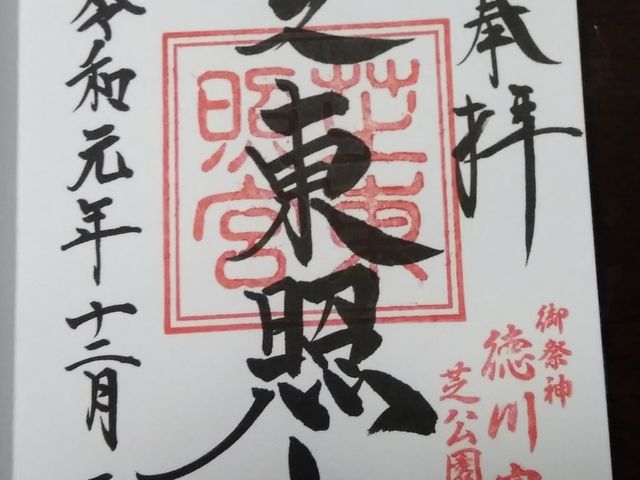 奉拝
御祭神
徳川
芝公園
芝東照
芝東
照宮
令和元年十二月